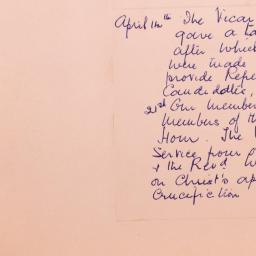 April 14th The Vicar
gave a ta
after which
were made
provide Refre
Candidates,
21st Our member
Members of th
Hour. The
Service from
+ the Revd W
on Christ's ap
Crucifiction